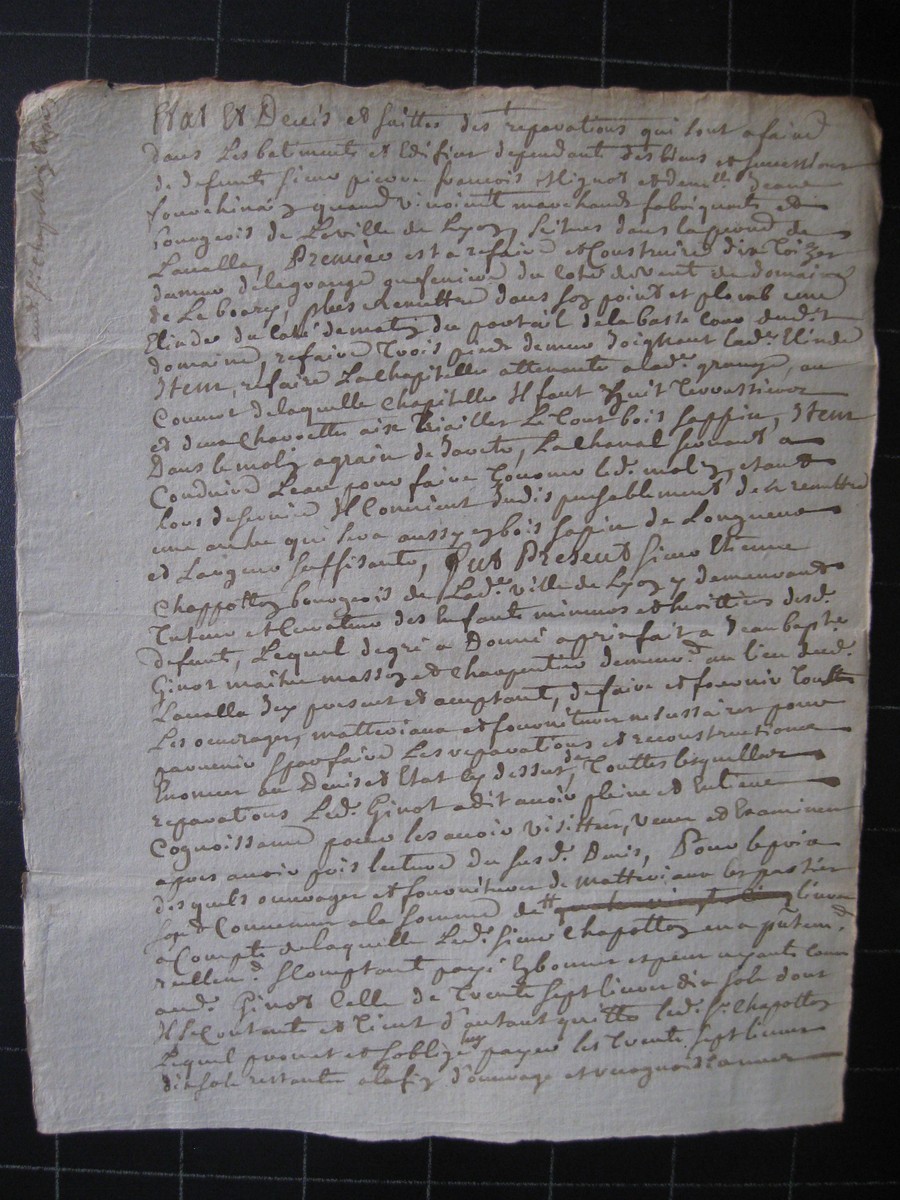 Etat Et Devis et suittes des reparations qui sont a faire
dans Les batiments et Edifices dependant des biens et successions
de defunts sieur pierre francois Mignot et dem.lle Jeane
quand vivoient marchands fabriquants et
bourgeois de La ville de Lyon, scitués dans la paroisse de
Lavalla, Premiere est a refaire et Construire dix Toizes
du mur de la grange du Coté de vent du domaine
de Le bourg, plus remettre dans son point et plomb une
du Coté de matin du portail de la basse Cour dudit
domaine, refaire Trois pieds de mur Joignant lad.
Item, refaire La Chapitelle attenante a lad. grange, au
Couvert de laquelle Chapitelle Il faut huit Travassieres
et deux Charrettes Le tout bois sappin, Item
Dans le molin a grain de La Chanal servant a
Conduire L'eau pour faire Tourner led. molin, etant
hors de service Il Convient Indispensablement de la remettre
une autre qui sera aussy en bois sapin de Longueur
et Largeur suffisante, fut Present sieur Etienne
Chappotton bourgeois de Lad. ville de Lyon y demeurant
Tuteur et Curateur des Enfants mineurs et heritiers desd.
defunt, Lequel de gré a Donné a prix fait a Jean bapte
Ginot maitre masson et Charpentier demeur.t au lieu dud.
Lavalla Icy present et acceptant, de faire et fournir Toutes
Les ouvrages, matteriaux et fournitures necessaires pour
parvenir a parfaire Les reparations et reconstructions
au Devis et Etat cy dessus, de Touttes lesquelles
reparations Led. Ginot a dit avoir pleine et Entiere
Cognoissance pour les avoir visittées, veues et Examinées
apres avoir pris lecture du susd. Devis, Pour le prix
desquels ouvrages et fournitures de matteriaux les parties
sont Convenues a la somme de livres
a Compte de laquelle Led. sieur Chapotton en a pntem.t
reellem.t Comptant payé En bonnes especes ayants cours
aud. Ginot Celle de Trente sept livres dix sols dont
Il se Contente et Tient d'autant quitte led. s.r Chapotton
Lequel promet et s'oblige luy payer les Trente sept livres
dix sols restantes a la fin d'ouvrage et